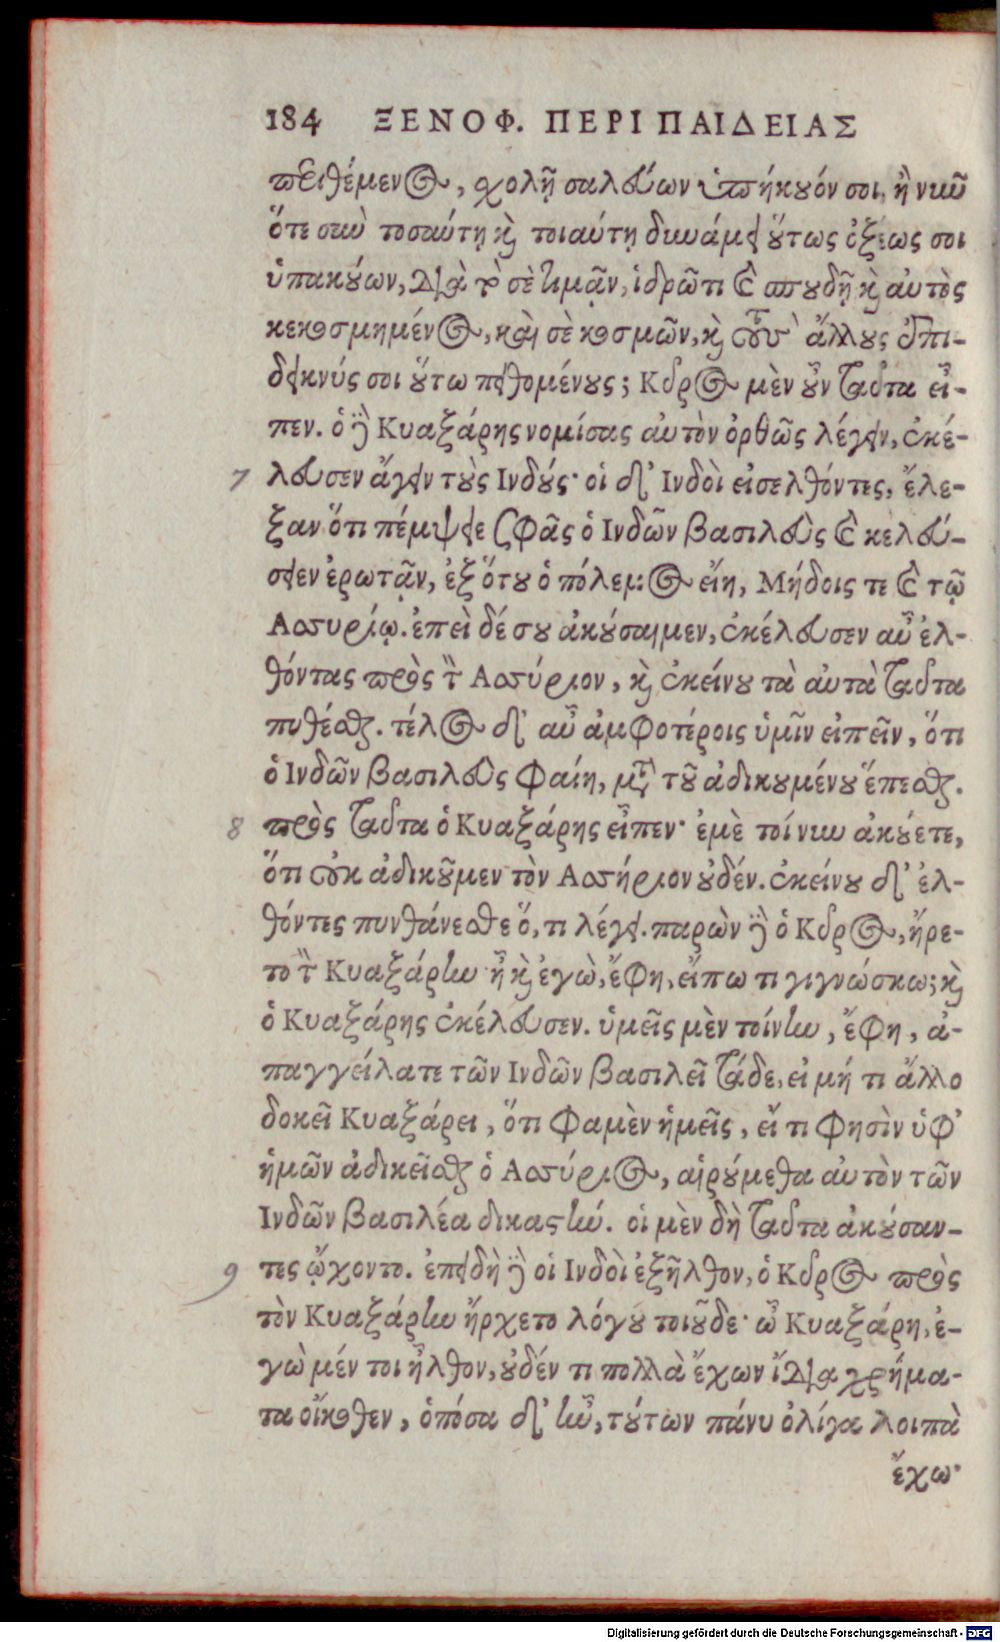 184 ΞΕΝΟΦ. ΠΕΡΙ ΠΑΙΔΕΙΑΣ
περιθέμενος, σχολῇ σαλεύων ὑπήκουόν σοι, ἢ νῦν
ὅτε σὺν τοσαύτῃ καὶ τοιαύτῃ δυνάμει οὕτως ὀξέως σοι
ὑπακούων, διὰ τὸ σὲ τιμᾷν, ἱδρῶτι καὶ σπουδῇ καὶ αὐτὸς
κεκοσμημένος, καὶ σὲ κοσμῶν, καὶ τοὺς ἄλλους ἐπι-
δεικνύς σοι οὕτω πειθομένους; Κῦρος μὲν οὖν ταῦτα εἶ-
πεν. ὁ δὲ Κυαξάρης νομίσας αὐτὸν ὀρθῶς λέγειν, ἐκέ-
7 λευσεν ἄγειν τοὺς Ινδούς· οἱ δ' Ινδοὶ εἰσελθόντες, ἔλε-
ξαν ὅτι πέμψειε σφᾶς ὁ Ινδῶν βασιλεὺς καὶ κελεύ-
σειεν ἐρωτᾷν, ἐξ ὅτου ὁ πόλεμος εἴη, Μήδοις τε καὶ τῷ
Ασσυρίῳ. ἐπεὶ δέ σου ἀκούσαιμεν, ἐκέλευσεν αὖ ἐλ-
θόντας πρὸς τὸν Ασσύριον, καὶ ἐκείνου τὰ αὐτὰ ταῦτα
πυθέσθαι. τέλος δ' αὖ ἀμφοτέροις ὑμῖν εἰπεῖν, ὅτι
ὁ Ινδῶν βασιλεὺς φαίη, μετὰ τοῦ ἀδικουμένου ἕπεσθαι.
8 πρὸς ταῦτα ὁ Κυαξάρης εἶπεν· ἐμὲ τοίνυν ἀκούετε,
ὅτι οὐκ ἀδικοῦμεν τὸν Ασσήριον οὐδέν. ἐκείνου δ' ἐλ-
θόντες πυνθάνεσθε ὅ, τι λέγει. παρὼν δὲ ὁ Κῦρος, ἤρε-
το τὸν Κυαξάρην· ἦ καὶ ἐγὼ, ἔφη, εἴπω τι γιγνώσκω; καὶ
ὁ Κυαξάρης ἐκέλευσεν. ὑμεῖς μὲν τοίνυν, ἔφη, ἀ-
παγγείλατε τῶν Ινδῶν βασιλεῖ τάδε, εἰ μή τι ἄλλο
δοκεῖ Κυαξάρει, ὅτι φαμὲν ἡμεῖς, εἴ τι φησὶν ὑφ'
ἡμῶν ἀδικεῖσθαι ὁ Ασσύριος, αἱρούμεθα αὐτὸν τῶν
Ινδῶν βασιλέα δικαστήν. οἱ μὲν δὴ ταῦτα ἀκούσαν-
9 τες ᾤχοντο. ἐπειδὴ δὲ οἱ Ινδοὶ ἐξῆλθον, ὁ Κῦρος πρὸς
τὸν Κυαξάρην ἤρχετο λόγου τοιοῦδε· ὦ Κυαξάρη, ἐ-
γὼ μέν τοι ἦλθον, οὐδέν τι πολλὰ ἔχων ἴδια χρήμα-
τα οἴκοθεν, ὁπόσα δ' ἦν, τούτων πάνυ ὀλίγα λοιπὰ
ἔχω·
Digitalisierung gefördert durch die Deutsche Forschungsgemeinschaft - DFG